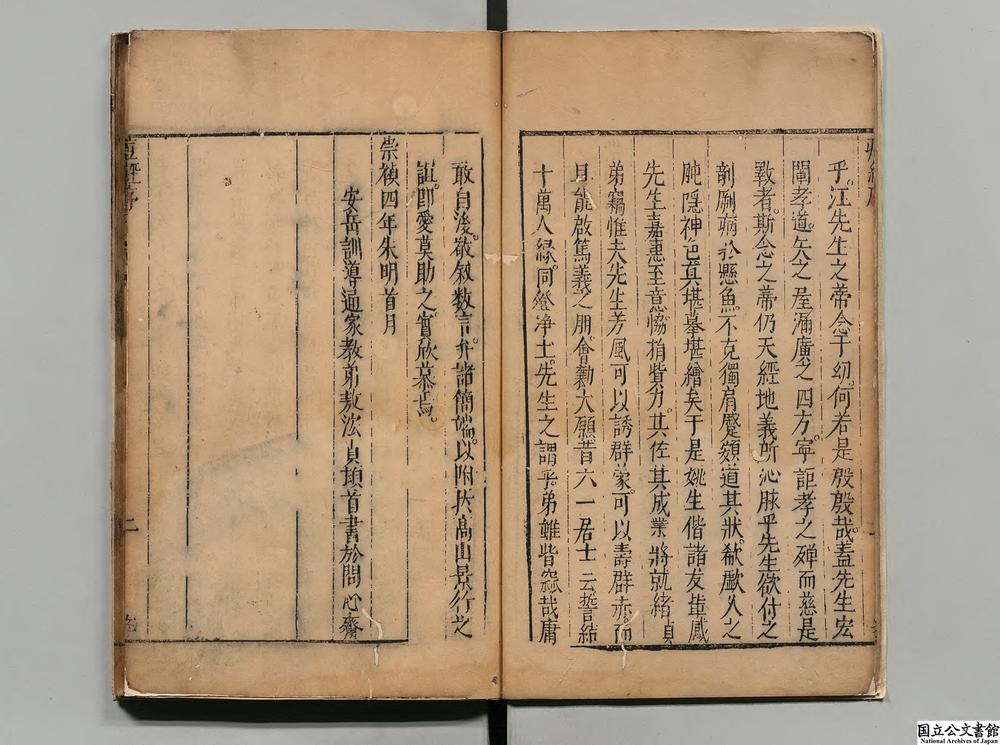 乎江先生之蒂念于幼何若是殷殷哉蓋先生宏
闡孝道矢之屋漏廣之四方寧詎孝之殫而慈是
斁者斯念之蒂仍天經地義所沁脉乎先生欲付之
剞劂病於懸魚不克獨肩蹙額道其狀欷歔久之
肫隱神色真堪摹堪繪矣于是姚生偕諸友輩感
先生嘉惠至意恊捐貲力其佐其成業將就緒貞
弟竊惟夫先生芳風可以誘群蒙可以壽群赤而
且能啟篤義之朋會勷大願昔六一居士云誓結
十萬人緣同證净土先生之謂乎弟雖呰窳哉庸
敢自後敬敘数言弁諸簡端以附於高山景行之
誼即愛莫助之實欣慕焉
崇禎四年朱明首月
安岳訓導通家教弟敖浤貞頓首書於問心齋
二
国立公文書館
National Archives of Japan